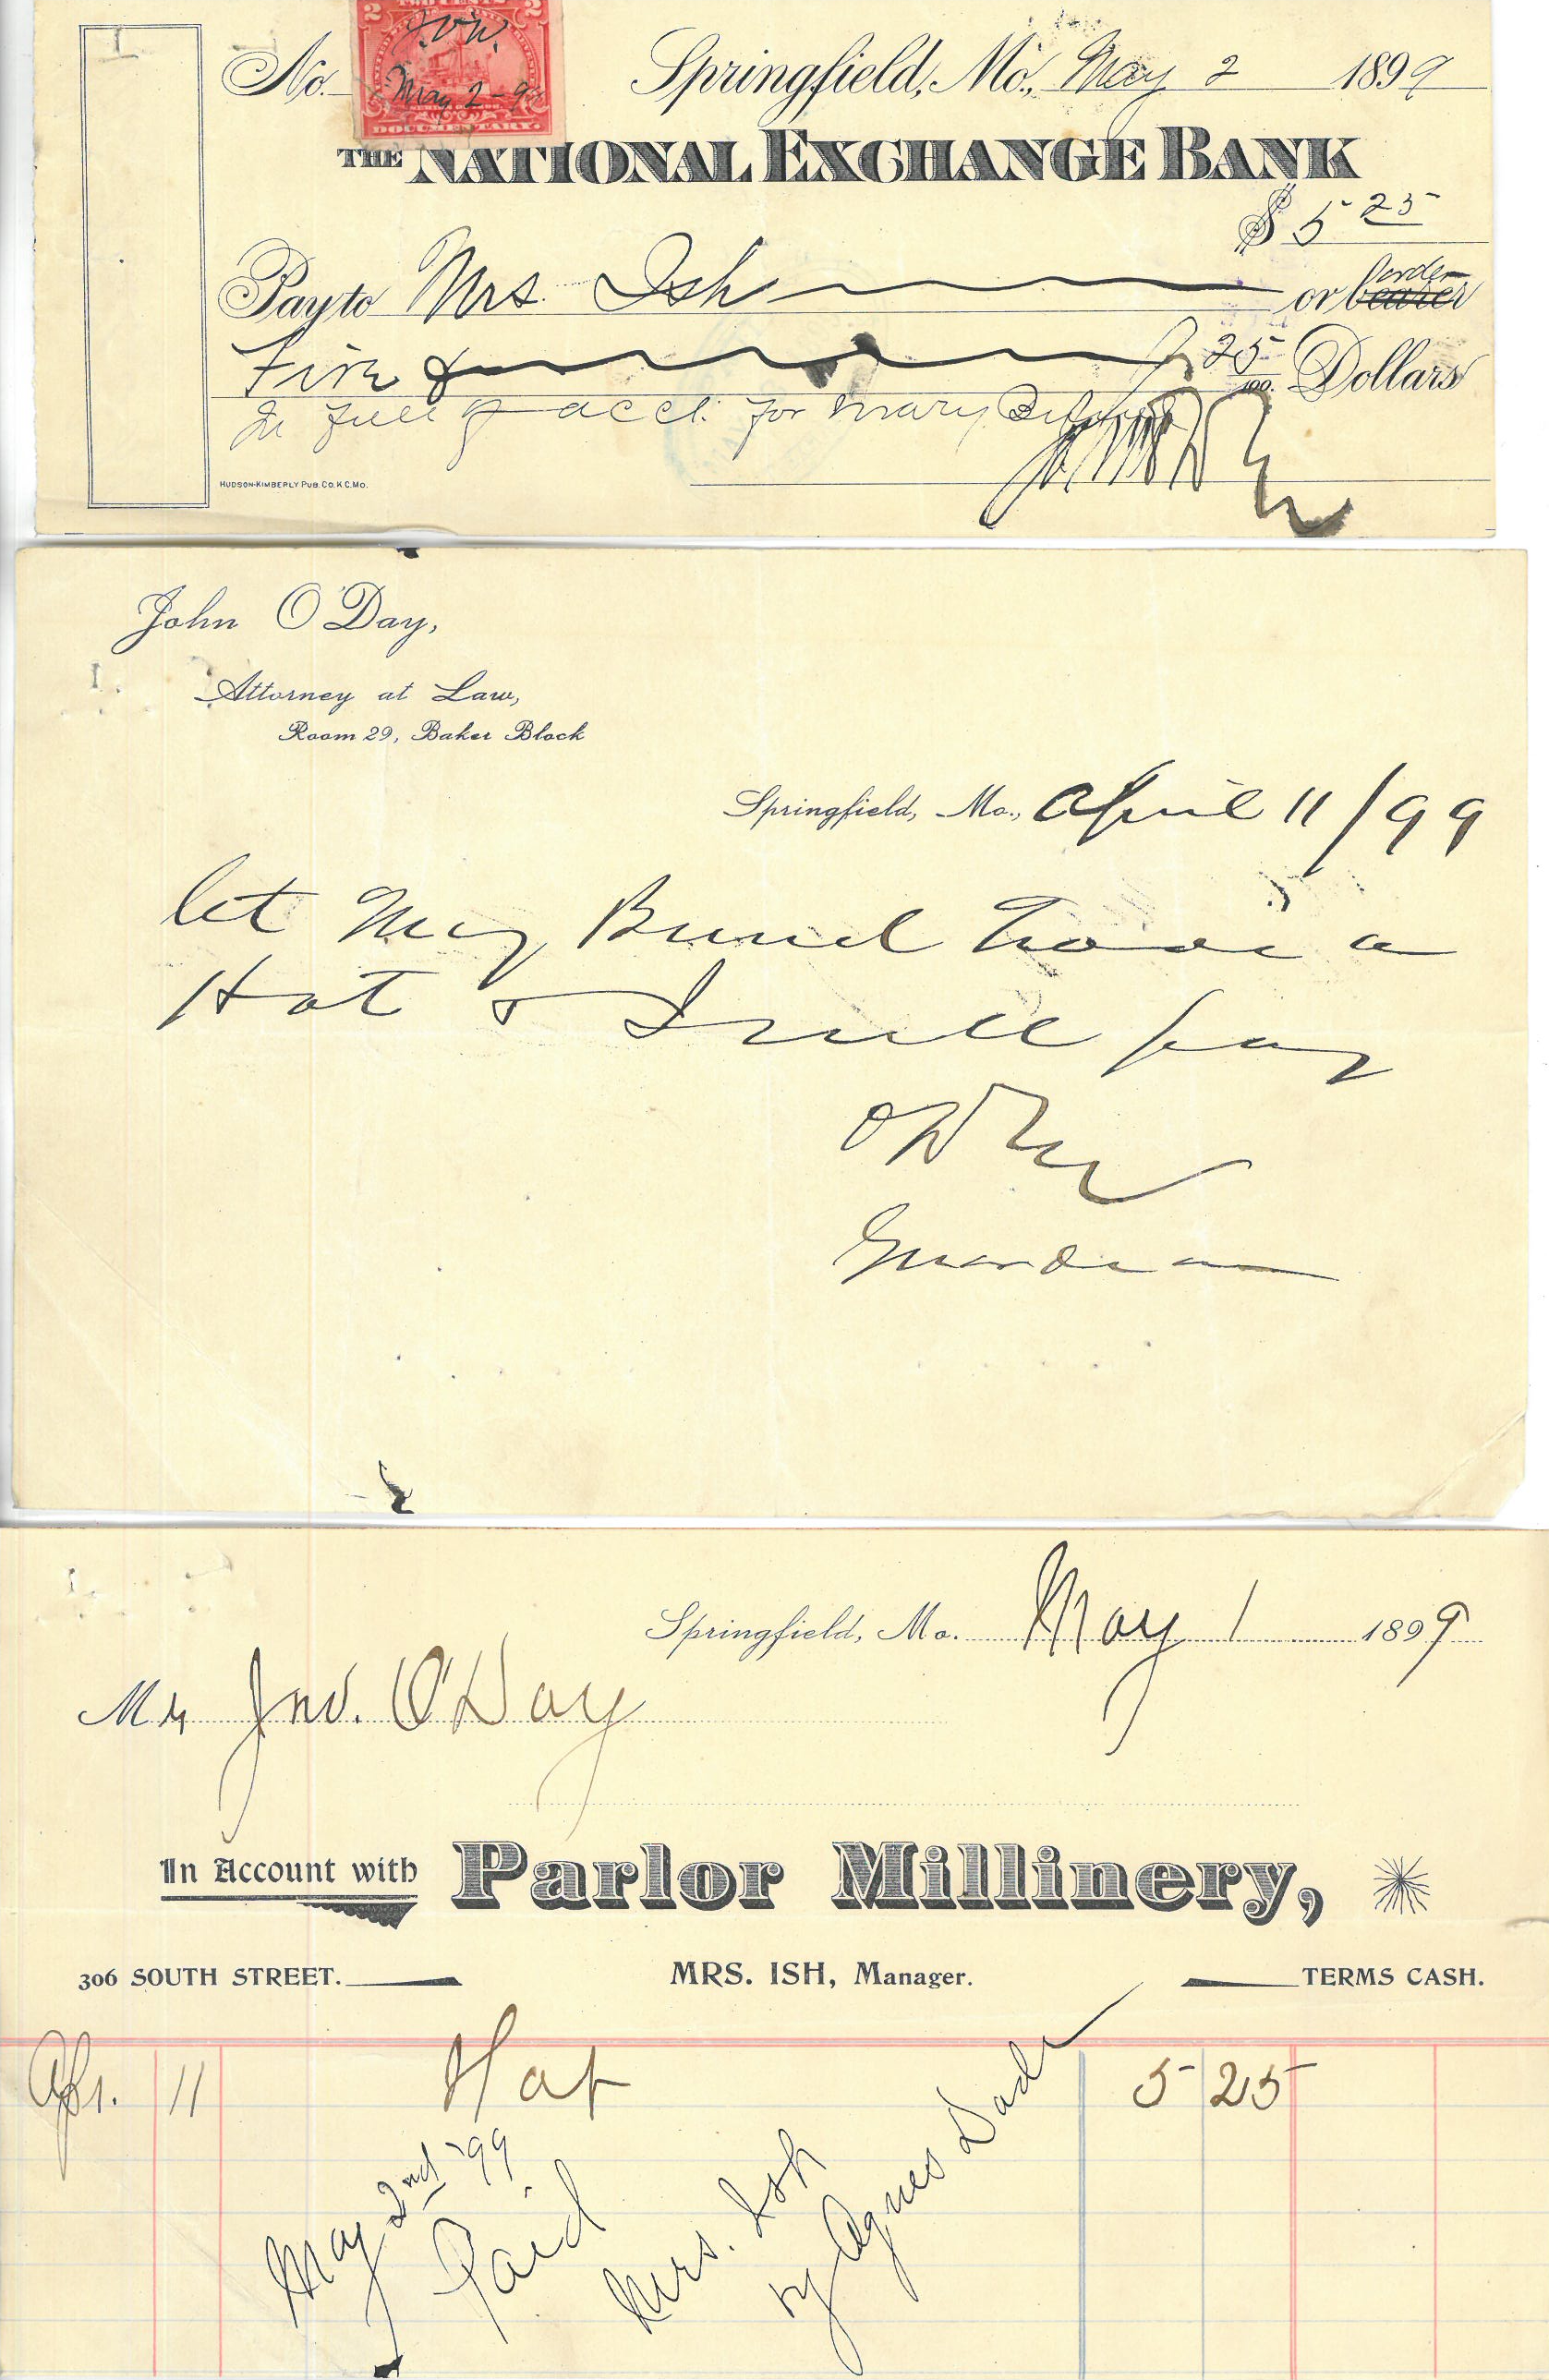 TWO CENTS
2 2
J.O.W.
May 2-9
DOCUMENTARY
No. Springfield, Mo., May 2 1899
THE NATIONAL EXCHANGE BANK
$ 5 25
Pay to Mrs. Ish or bearer order
Five & 25/100 Dollars
In full of acct. for Mary
HUDSON-KIMBERLY PUB. CO. K.C. MO.
John O'Day,
Attorney at Law,
Room 29, Baker Block
Springfield, Mo., April 11/99
let May have a
Hat & I will pay
Guardian
Springfield, Mo. May 1 1899
Mr Jno. O'Day
In Account with Parlor Millinery,
306 SOUTH STREET. MRS. ISH, Manager. TERMS CASH.
Apr. 11 Hat 5 25
May 2nd '99
Paid
Mrs. Ish
by Agnes